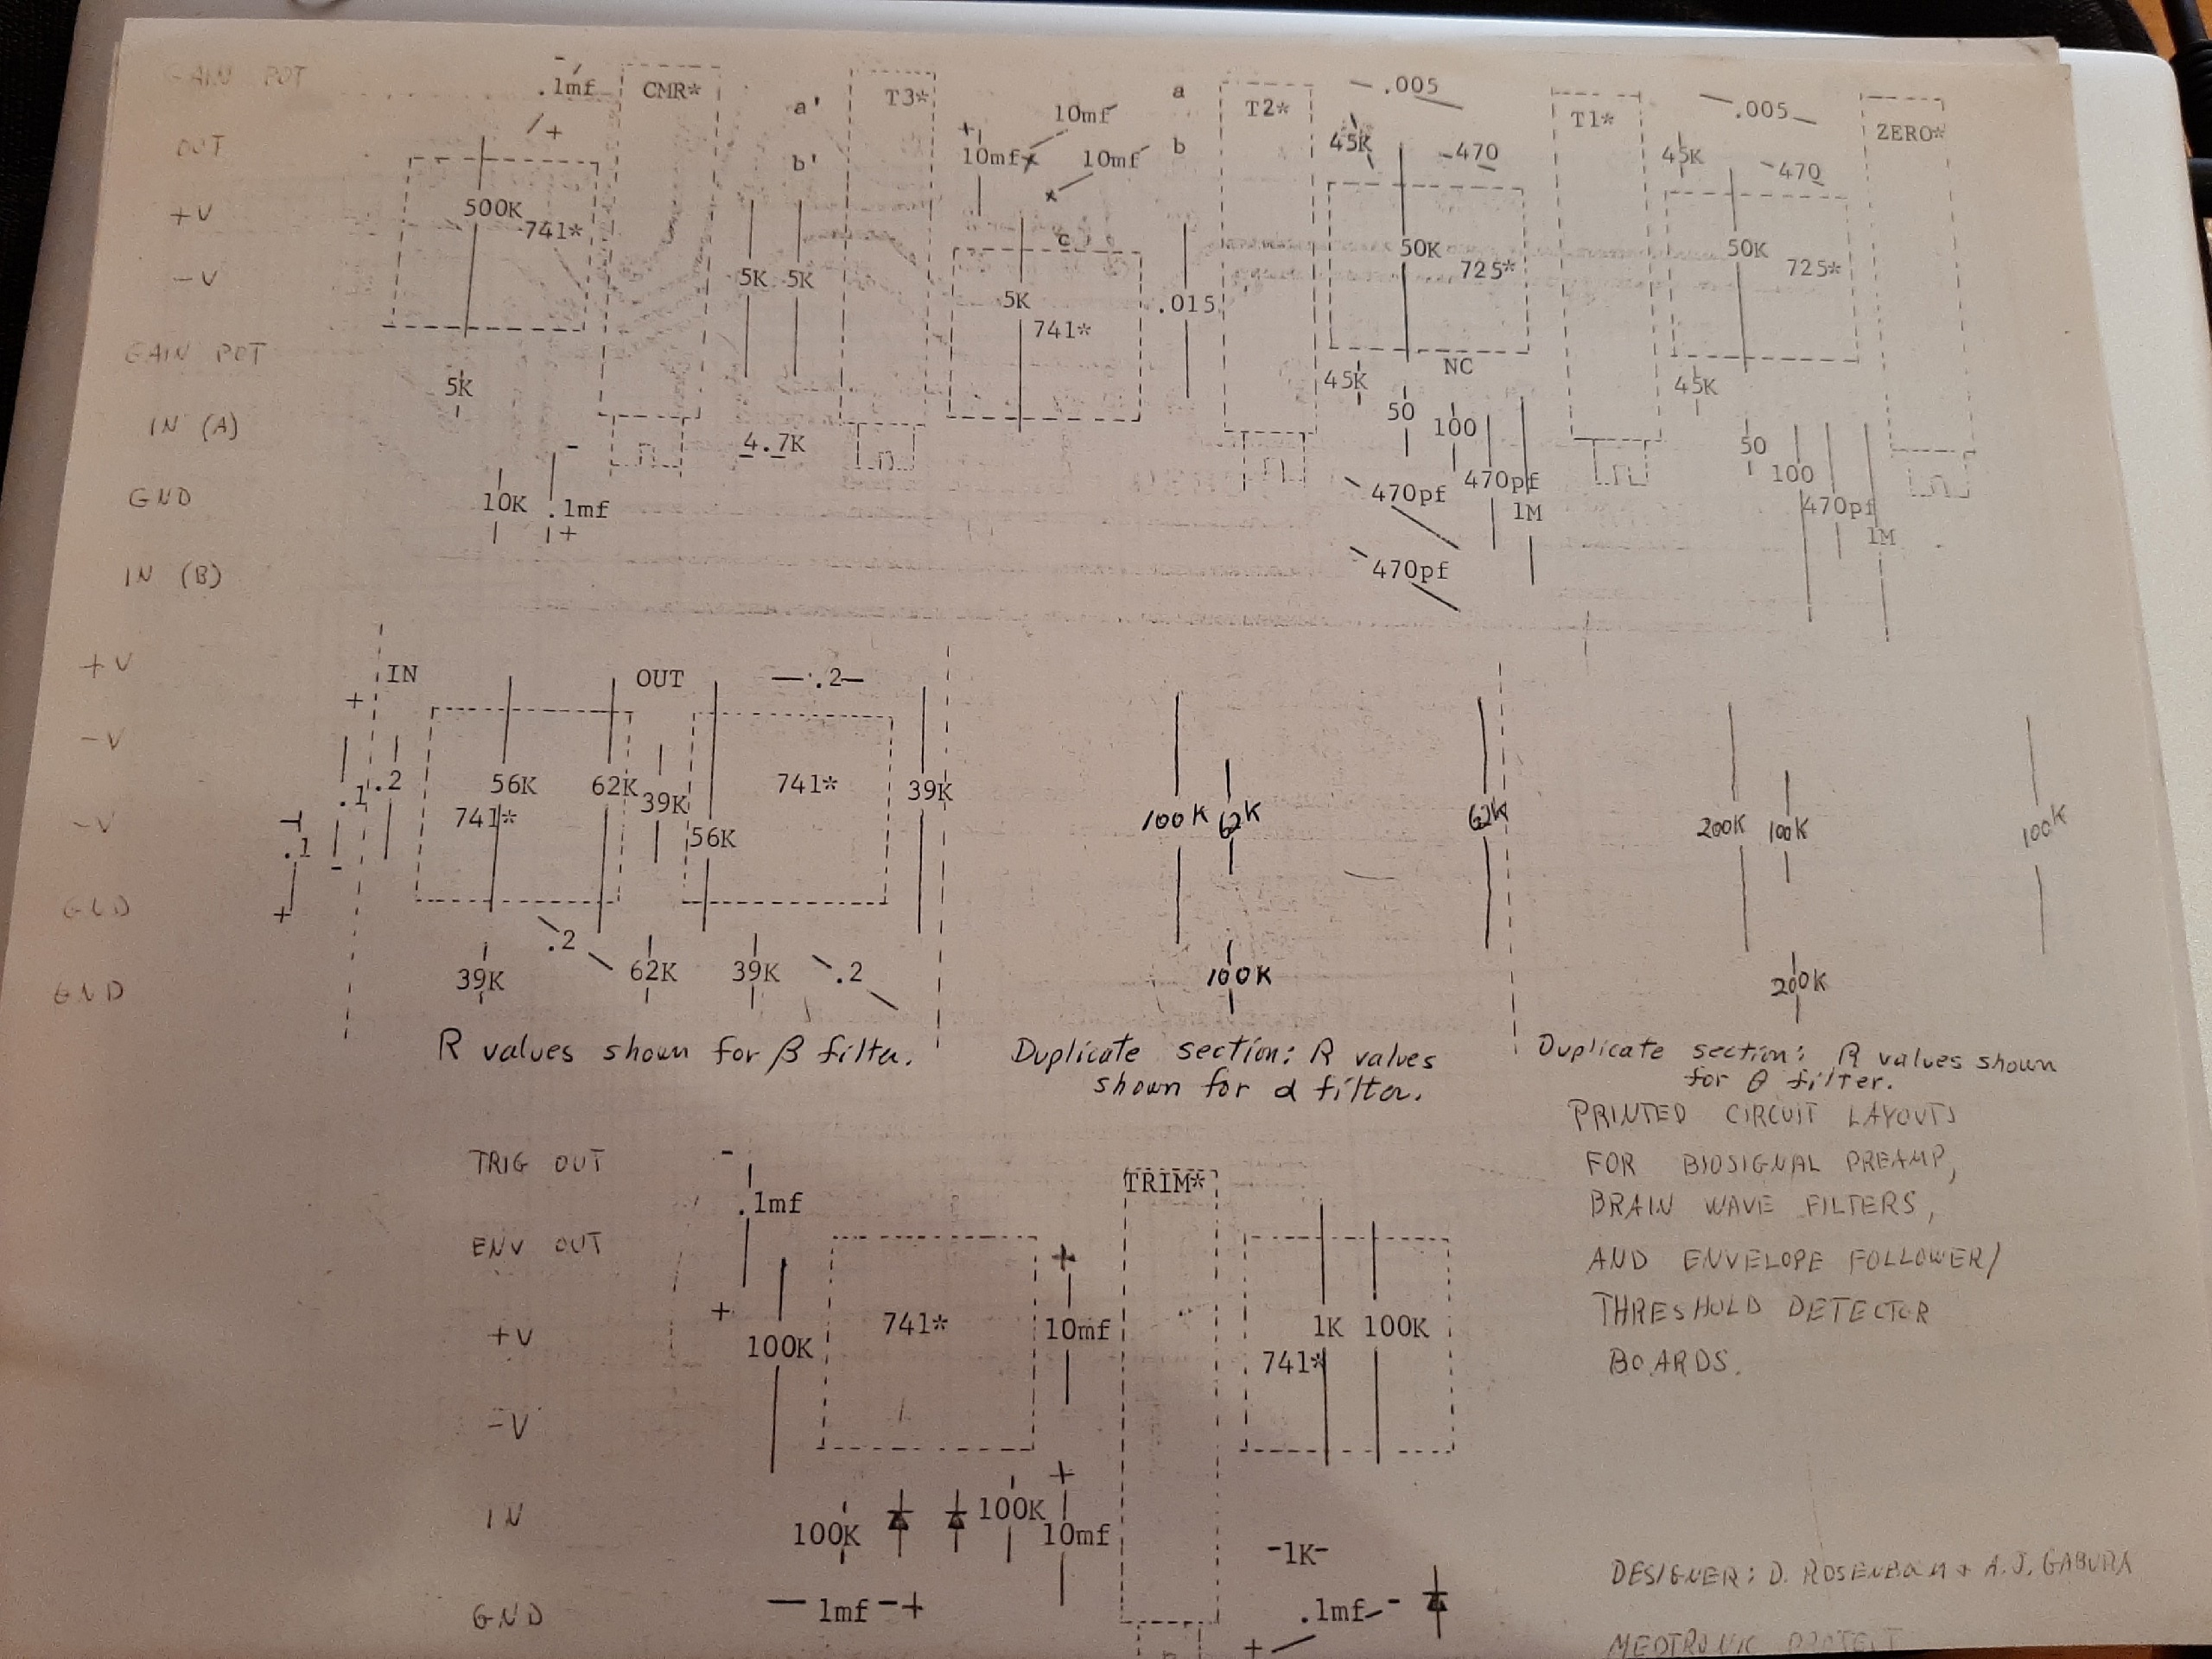 GAIN POT
OUT
+V
-V
GAIN POT
IN (A)
GND
IN (B)
.1mf
+
CMR*
500K
741*
5K
10K
-
.1mf
+
a'
b'
5K 5K
4.7K
T3*
+
10mf
10mf
10mf
a
b
c
5K
741*
.015
T2*
.005
45K
-470
50K
725*
NC
45K
50
100
470pf
470pf
1M
470pf
T1*
.005
45K
-470
50K
725*
45K
50
100
470pf
1M
ZERO*
+V
-V
-V
GND
GND
+
.1
-
.1
+
IN
.2
56K
741*
62K
OUT
39K
56K
.2
741*
39K
39K
.2
62K
39K
.2
R values shown for β filter.
100K
62K
62K
100K
Duplicate section: R values
shown for α filter.
200K
100K
100K
200K
Duplicate section: R values shown
for θ filter.
PRINTED CIRCUIT LAYOUTS
FOR BIOSIGNAL PREAMP,
BRAIN WAVE FILTERS,
AND ENVELOPE FOLLOWER/
THRESHOLD DETECTOR
BOARDS.
TRIG OUT
ENV OUT
+V
-V
IN
GND
-
.1mf
+
100K
741*
+
10mf
TRIM*
1K 100K
741*
100K
100K
+
10mf
1mf -+
-1K-
.1mf -
+
DESIGNER: D. ROSENBOOM + A.J. GABURA